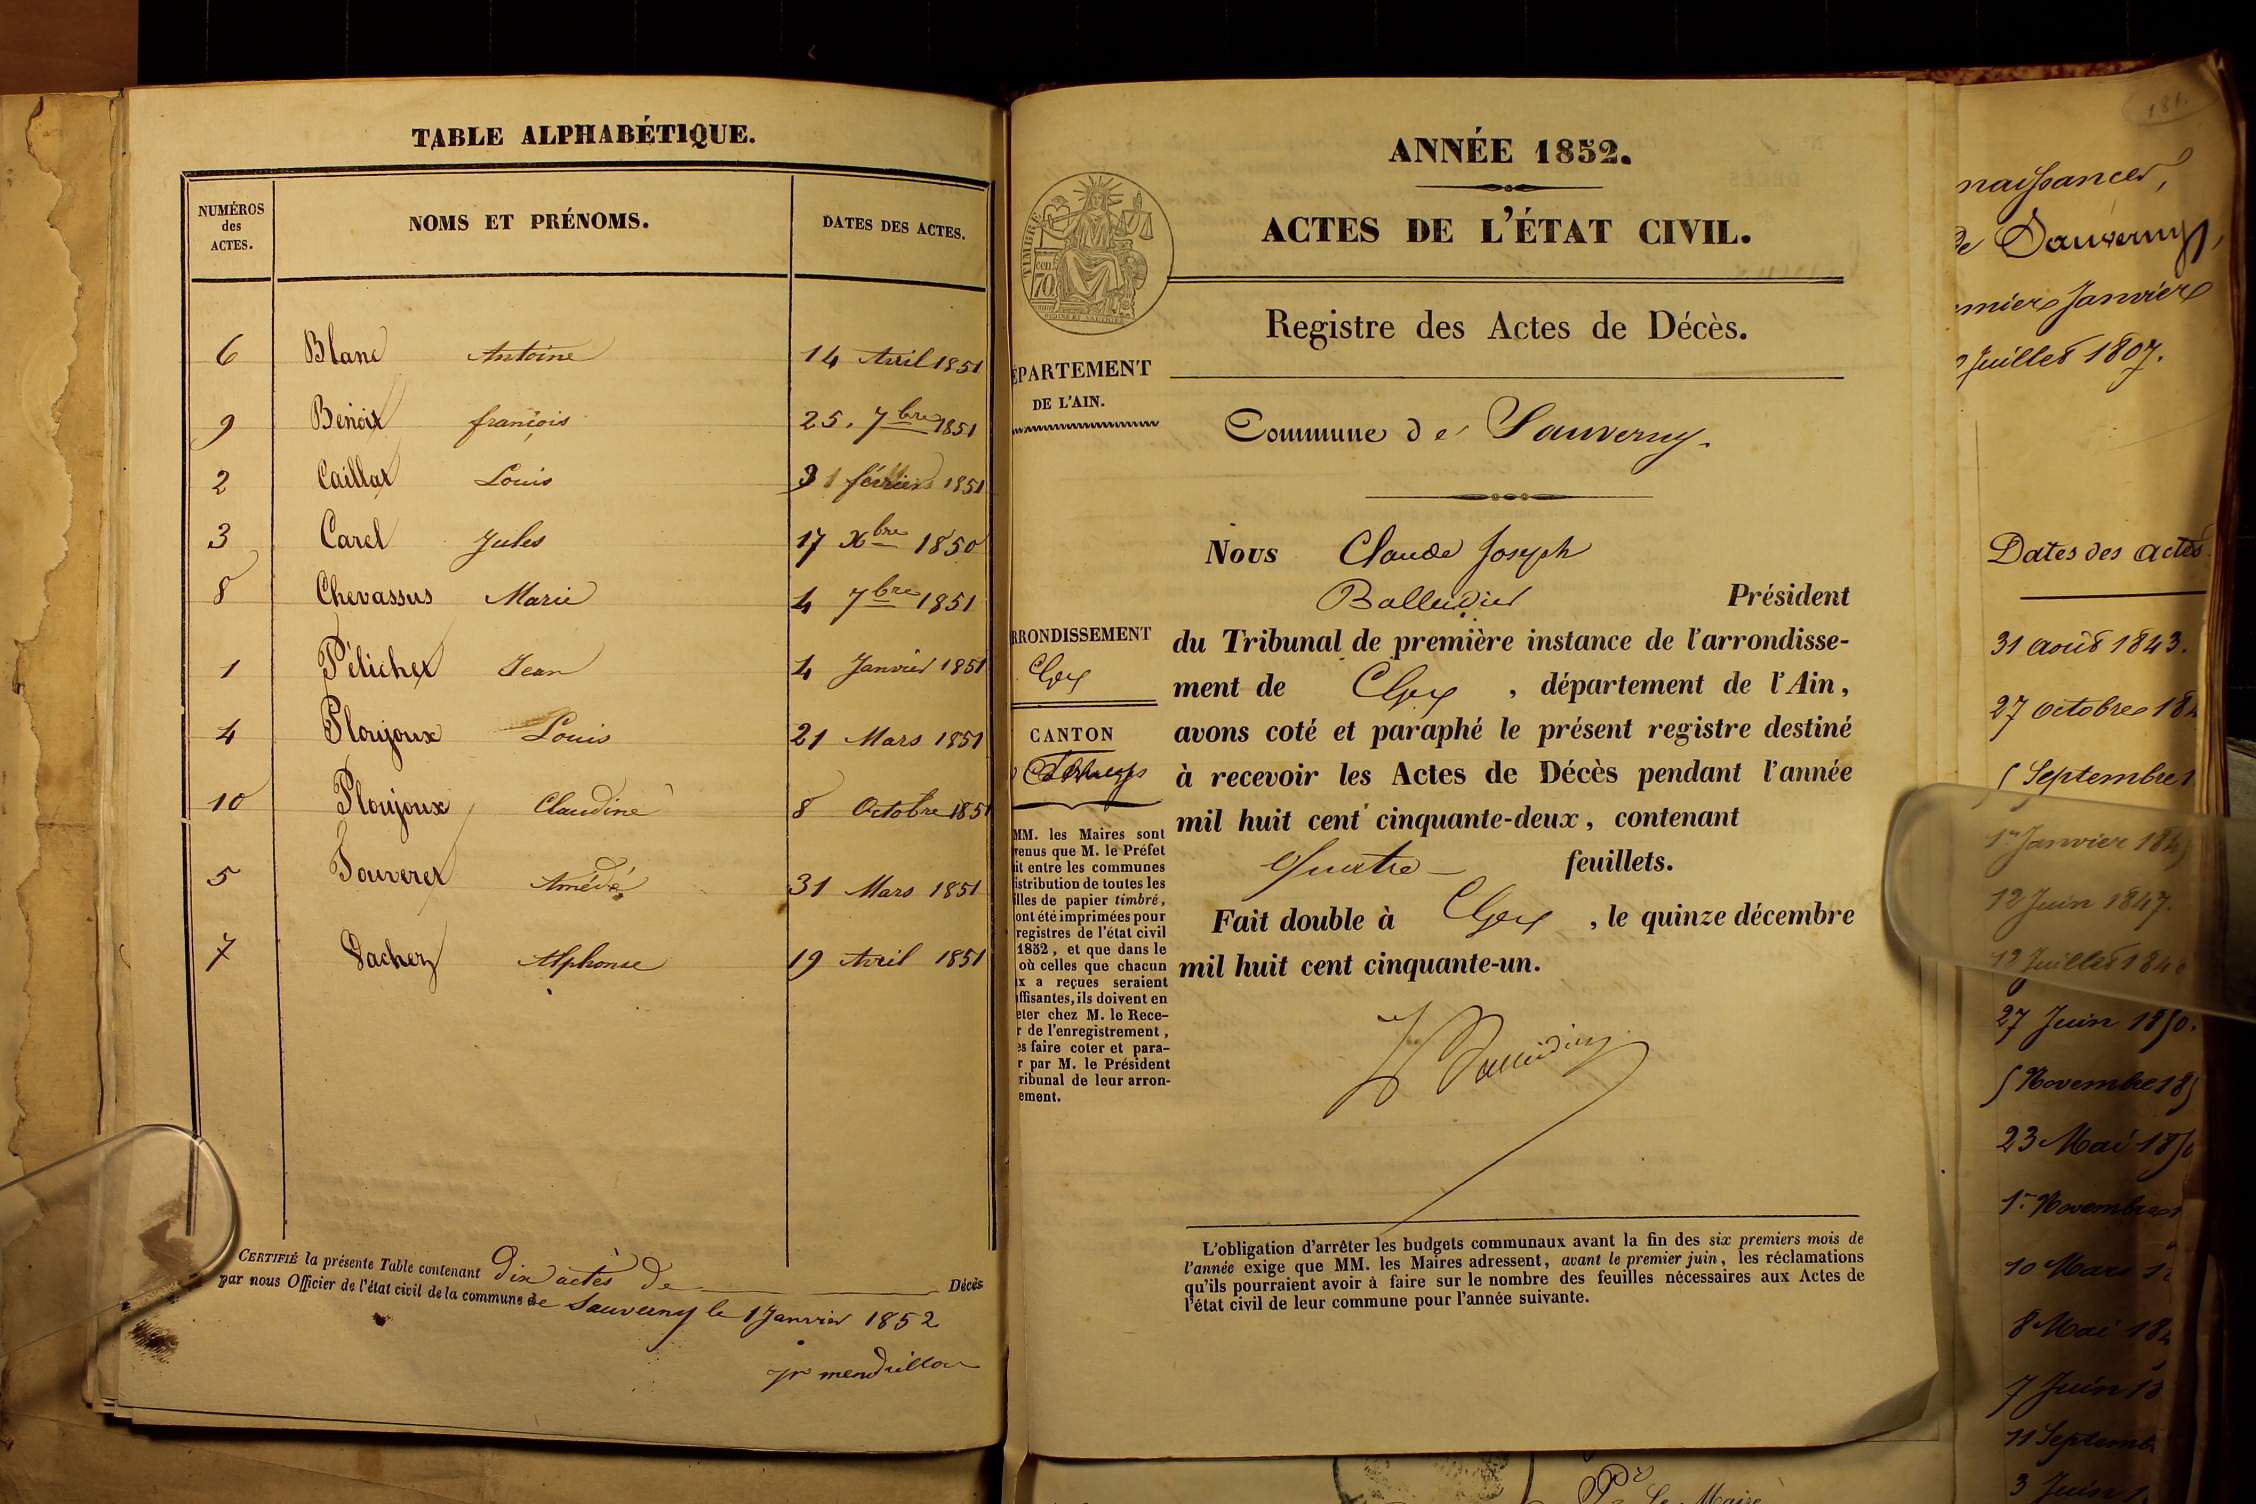 TABLE ALPHABÉTIQUE.
NUMÉROS des ACTES.
NOMS ET PRÉNOMS.
DATES DES ACTES.
6 Blanc Antoine 14 Avril 1851
9 Benoit françois 25. 7bre 1851
2 Caillat Louis 31 février 1851
3 Carel Jules 17 Xbre 1850
8 Chevassus Marie 4 7bre 1851
1 Pélichet Jean 4 Janvier 1851
4 Ploujoux Louis 21 Mars 1851
10 Ploujoux Claudine 8 Octobre 1851
5 Jouveret Amédé 31 Mars 1851
7 Vachez Alphonse 19 Avril 1851
CERTIFIÉ la présente Table contenant Dix actes de Décès
par nous Officier de l'état civil de la commune de Sauverny le 1 Janvier 1852
mendrillon
ANNÉE 1852.
ACTES DE L'ÉTAT CIVIL.
TIMBRE
cen.
70
Registre des Actes de Décès.
ÉPARTEMENT
DE L'AIN.
Commune de Sauverny.
RRONDISSEMENT
Gex
CANTON
MM. les Maires sont
venus que M. le Préfet
it entre les communes
istribution de toutes les
illes de papier timbré,
ont été imprimées pour
registres de l'état civil
1852, et que dans le
où celles que chacun
x a reçues seraient
ffisantes, ils doivent en
eter chez M. le Rece-
r de l'enregistrement,
es faire coter et para-
r par M. le Président
ribunal de leur arron-
ement.
Nous Claude Joseph
Balleidier Président
du Tribunal de première instance de l'arrondisse-
ment de Gex , département de l'Ain,
avons coté et paraphé le présent registre destiné
à recevoir les Actes de Décès pendant l'année
mil huit cent cinquante-deux, contenant
quatre feuillets.
Fait double à Gex , le quinze décembre
mil huit cent cinquante-un.
L'obligation d'arrêter les budgets communaux avant la fin des six premiers mois de
l'année exige que MM. les Maires adressent, avant le premier juin, les réclamations
qu'ils pourraient avoir à faire sur le nombre des feuilles nécessaires aux Actes de
l'état civil de leur commune pour l'année suivante.
181.
naissances,
de Sauverny,
mier Janvier
Juillet 1807.
Dates des actes
31 août 1843.
27 octobre 184
5 Septembre 1
1er Janvier 184
12 Juin 1847.
12 Juillet 184
27 Juin 1850.
5 Novembre 185
23 Mai 1850
1er Novembre 1
10 Mars 1
8 Mai 184
7 Juin 18
11 Septemb
3 Juin 1
Le Maire